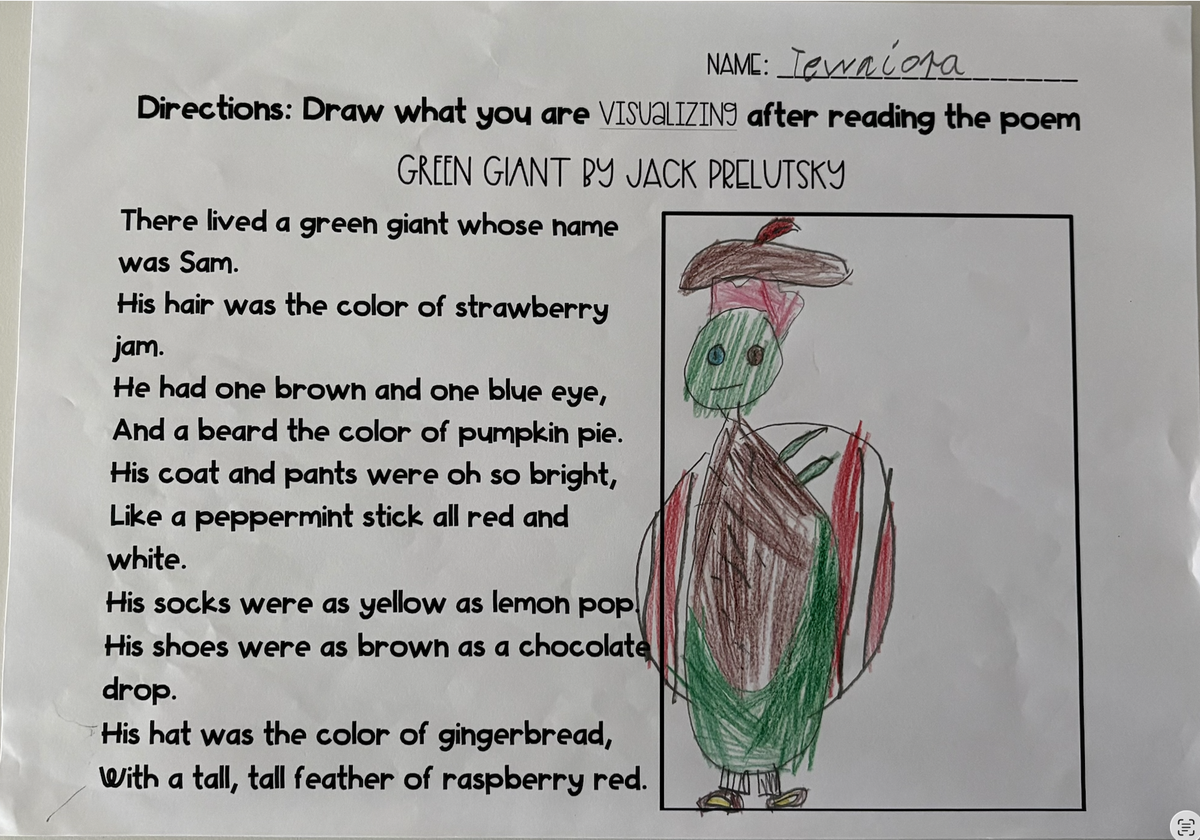 NAME: Tewniora
Directions: Draw what you are VISUaLIZING after reading the poem
GREEN GIANT BY JACK PRELUTSKY
There lived a green giant whose name
was Sam.
His hair was the color of strawberry
jam.
He had one brown and one blue eye,
And a beard the color of pumpkin pie.
His coat and pants were oh so bright,
Like a peppermint stick all red and
white.
His socks were as yellow as lemon pop.
His shoes were as brown as a chocolate
drop.
His hat was the color of gingerbread,
With a tall, tall feather of raspberry red.